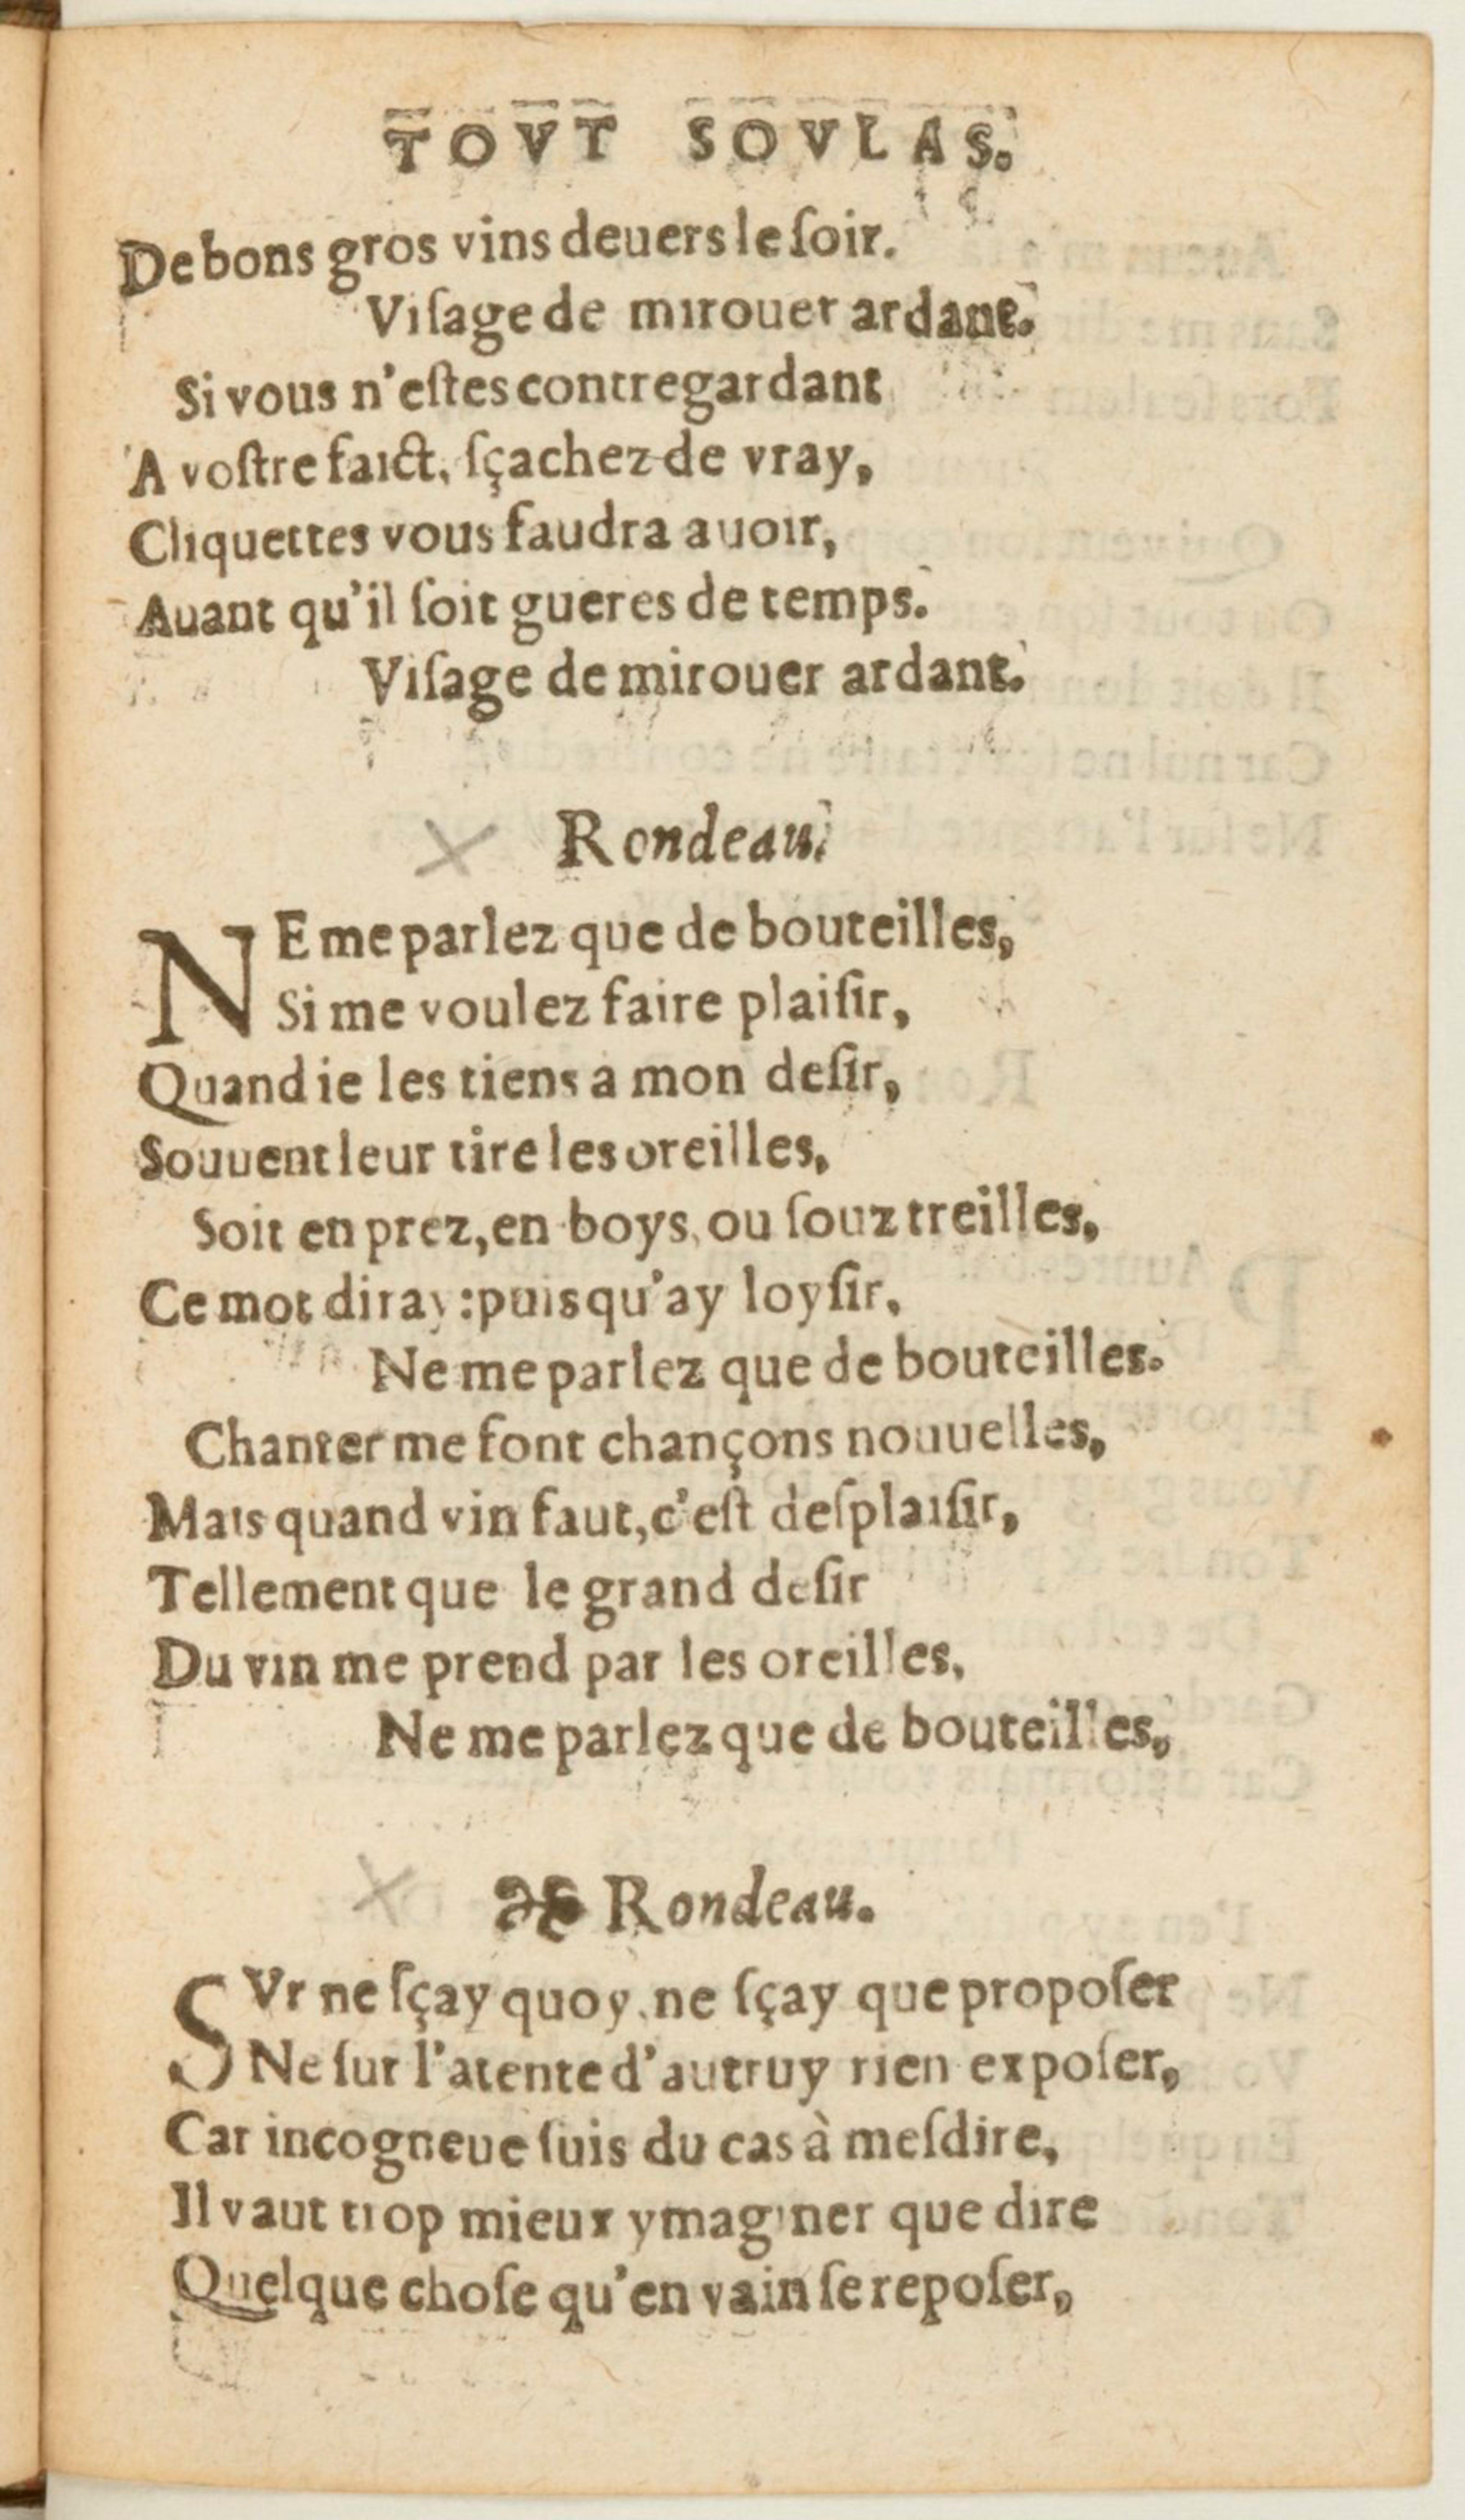 TOVT SOVLAS.
De bons gros vins deuers le ſoir.
Viſage de mirouer ardant.
Si vous n'eſtes contregardant
A voſtre faict, ſçachez de vray,
Cliquettes vous faudra auoir,
Auant qu'il ſoit gueres de temps.
Viſage de mirouer ardant.
Rondeau.
NE me parlez que de bouteilles,
Si me voulez faire plaiſir,
Quand ie les tiens a mon deſir,
Souuent leur tire les oreilles,
Soit en prez, en boys, ou ſouz treilles,
Ce mot diray: puis qu'ay loyſir,
Ne me parlez que de bouteilles.
Chanter me font chançons nouuelles,
Mais quand vin faut, c'eſt deſplaiſir,
Tellement que le grand deſir
Du vin me prend par les oreilles,
Ne me parlez que de bouteilles,
Rondeau.
SVr ne ſçay quoy, ne ſçay que propoſer
Ne ſur l'atente d'autruy rien expoſer,
Car incogneue ſuis du cas à meſdire,
Il vaut trop mieux ymaginer que dire
Quelque choſe qu'en vain ſe repoſer,